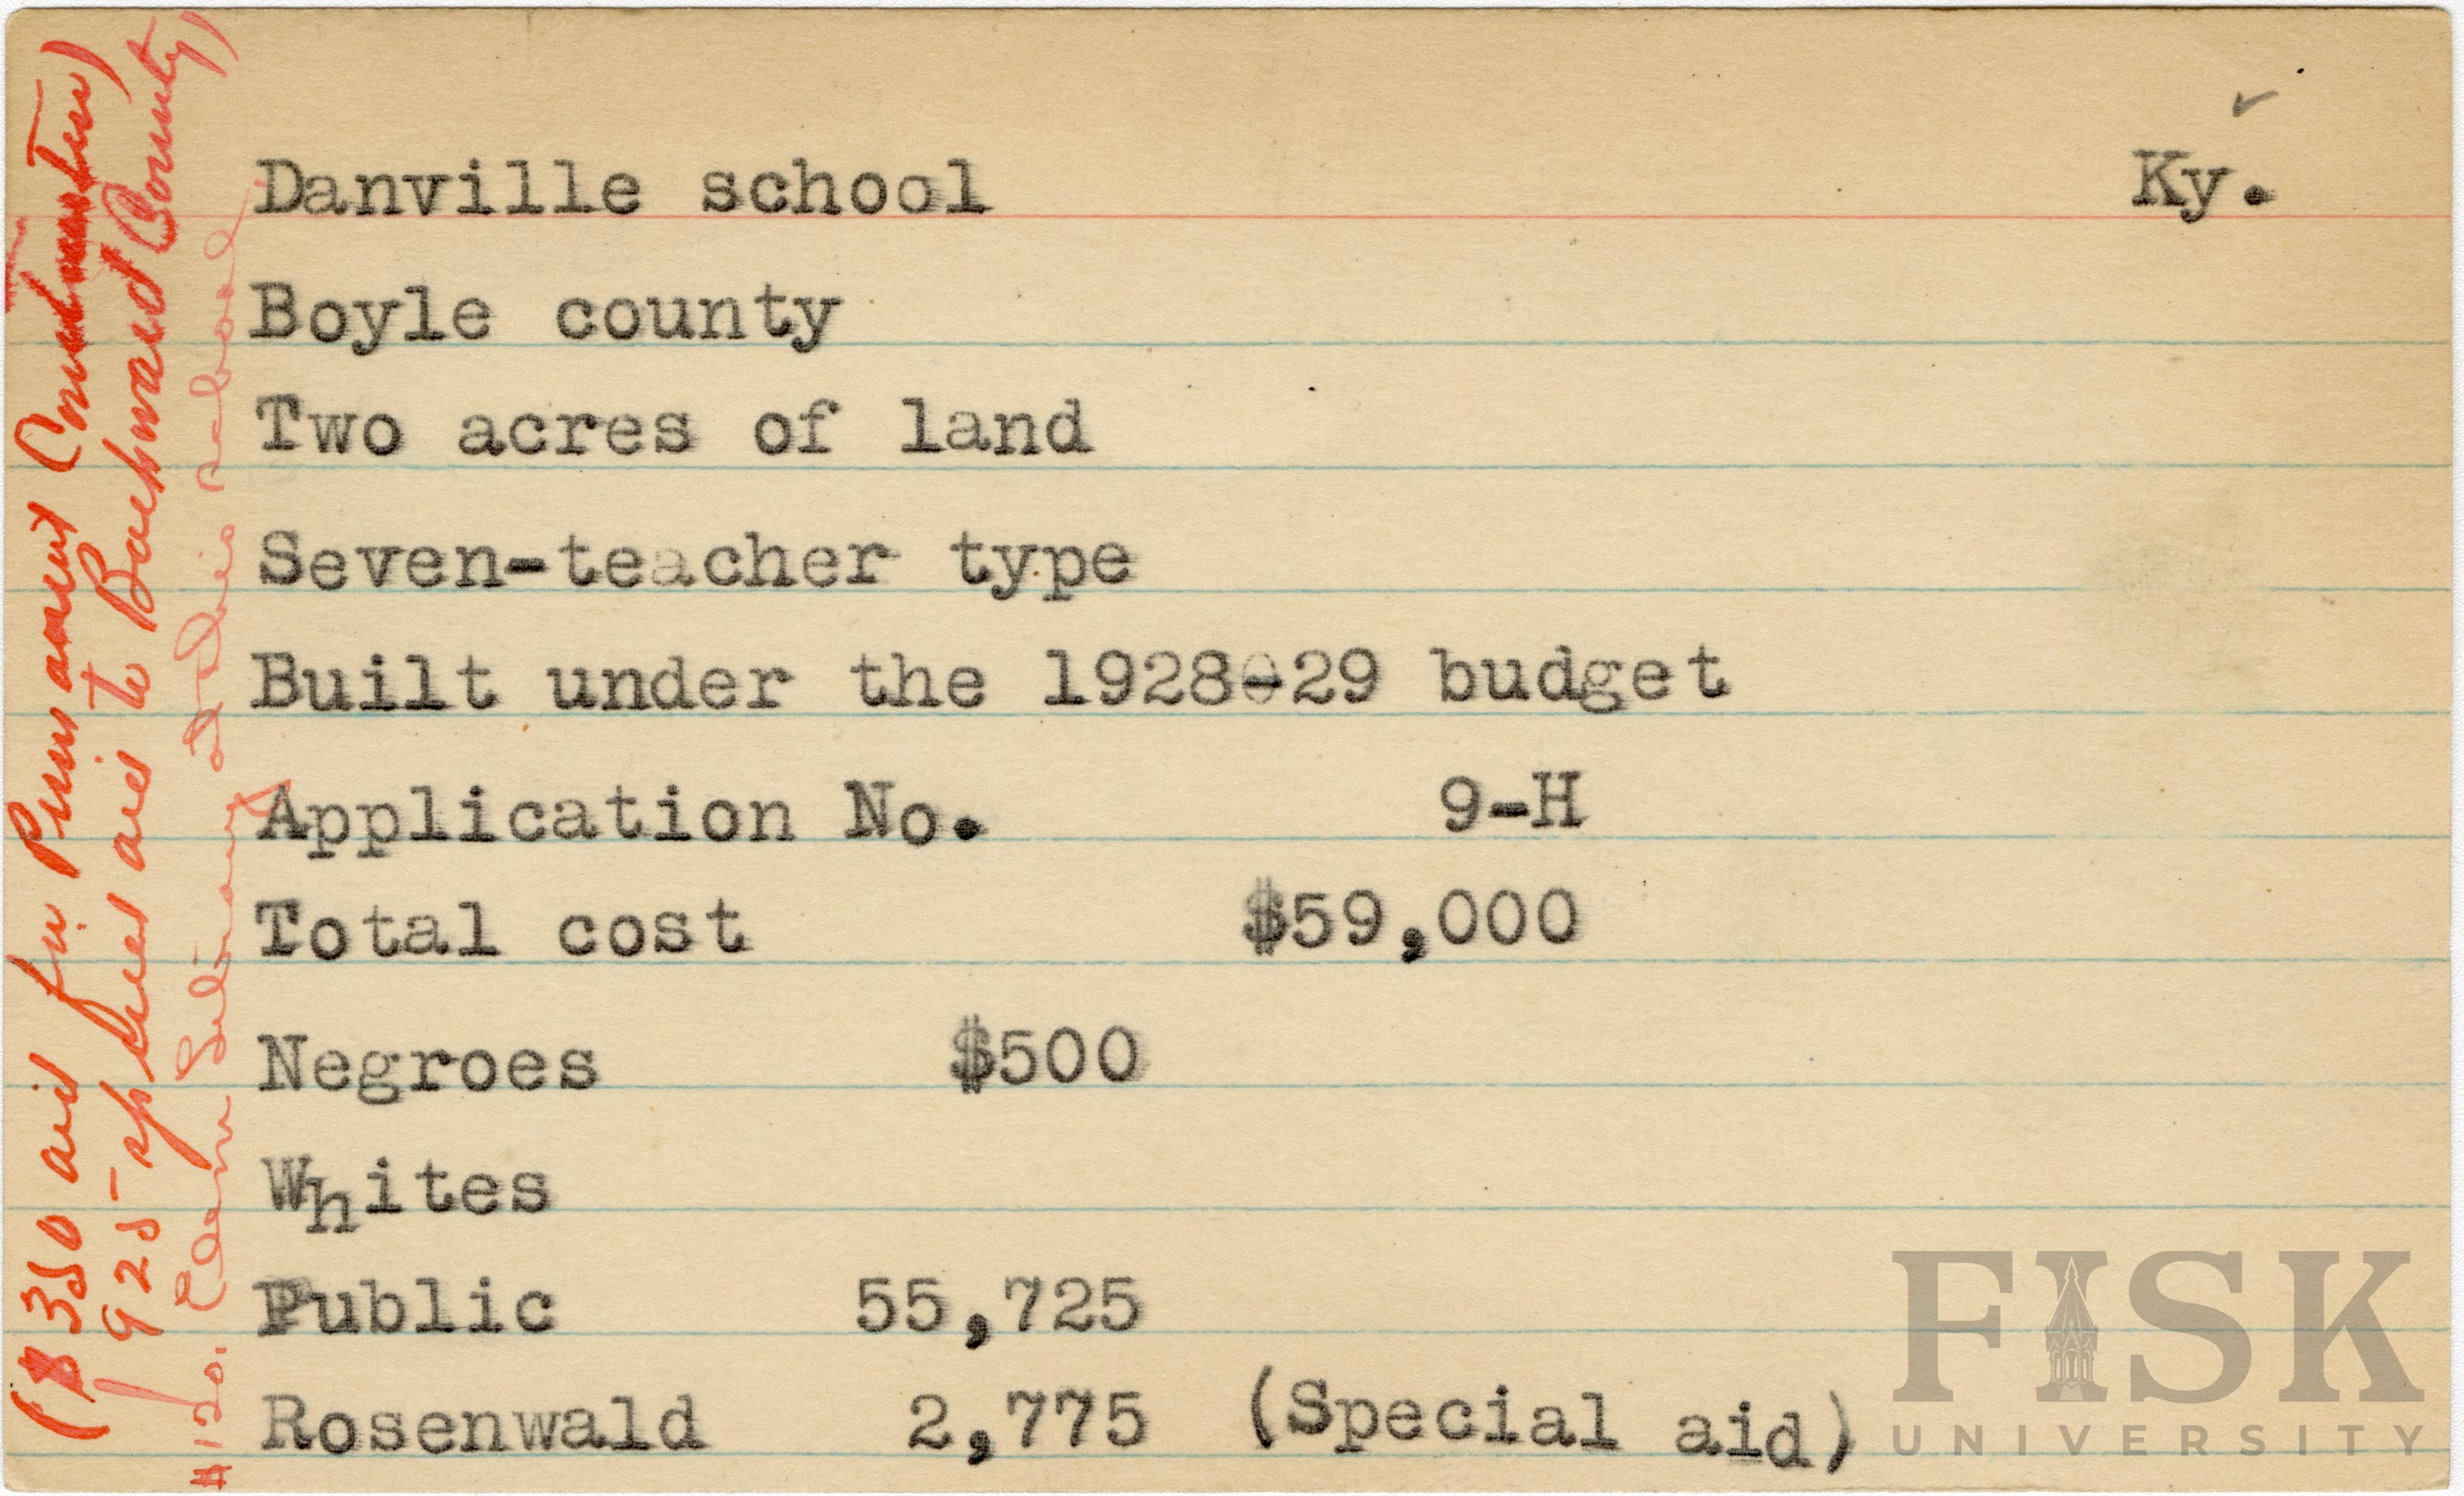 Danville school Ky.
Boyle county
Two acres of land
Seven-teacher type
Built under the 1928-29 budget
Application No. 9-H
Total cost $59,000
Negroes $500
Whites
Public 55,725
Rosenwald 2,775 (Special aid)
($350 aid for Permanent Construction)
(925 - special aid to Backward County)
#120. Elem Library this school
FISK
UNIVERSITY